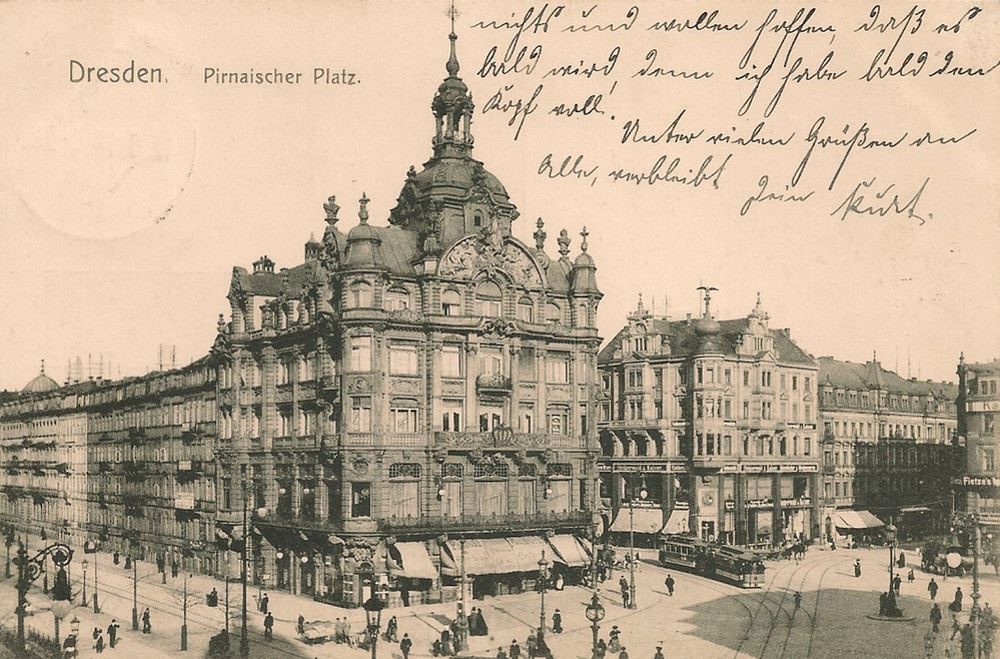 nichts und wollen hoffen, daß es
bald wird, denn ich habe bald den
Kopf voll.
Unter vielen Grüßen an
Alle, verbleibt Dein Kurt.
Dresden. Pirnaischer Platz.
Fietze's